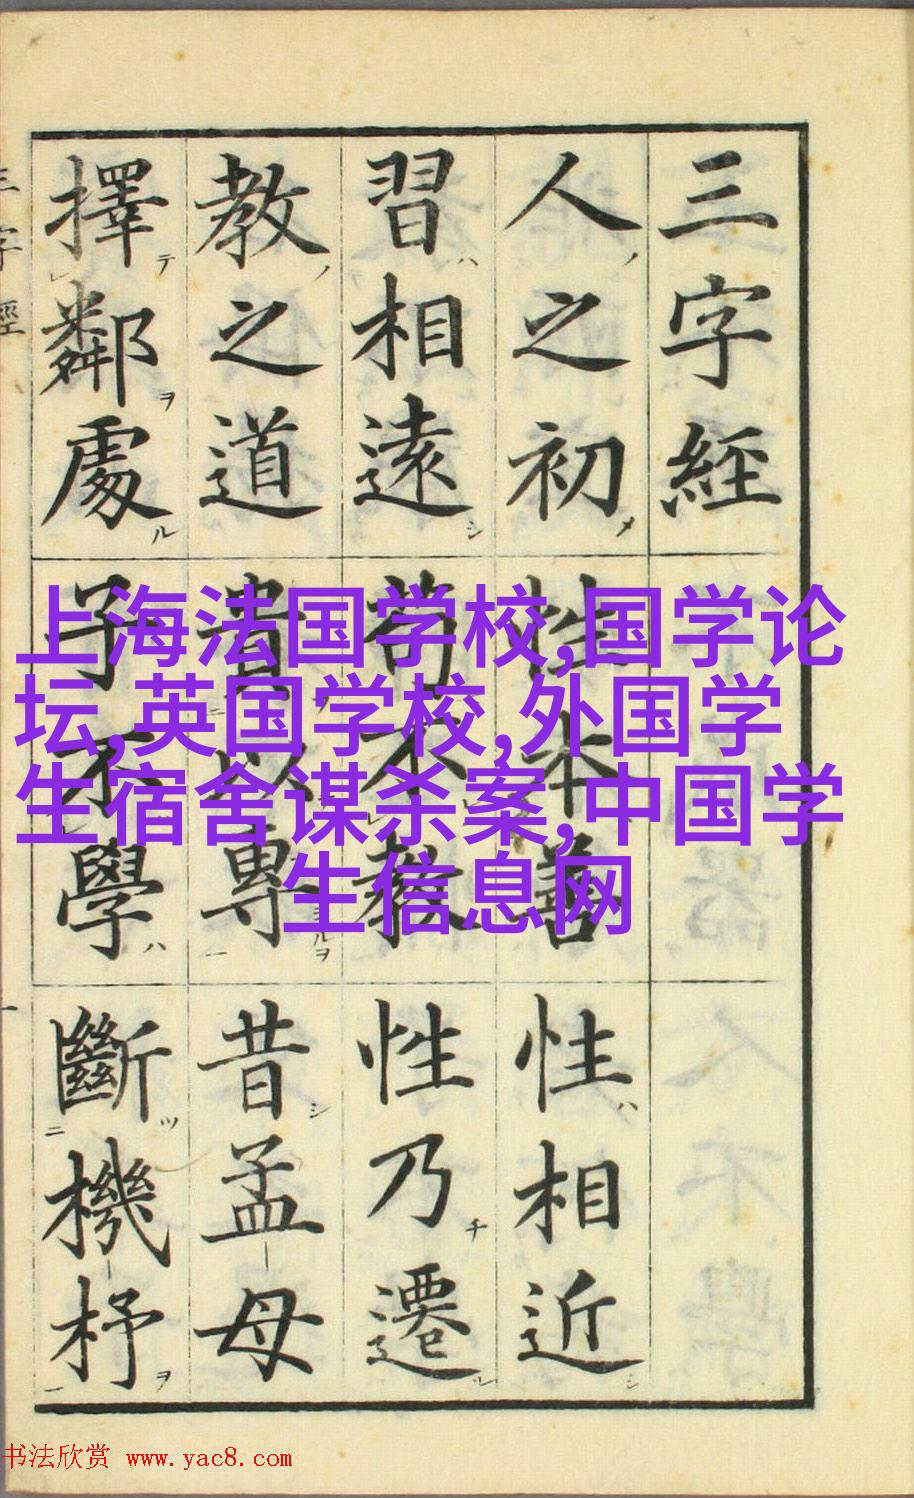 三字経
人之初 性本善 性相近
習相遠 苟不教 性乃遷
教之道 貴以專 昔孟母
擇鄰處 子不學 斷機杼
三字經 一
上海法国学校,国学论
坛,英国学校,外国学
生宿舍谋杀案,中国学
生信息网
书法欣赏 www.yac8.com